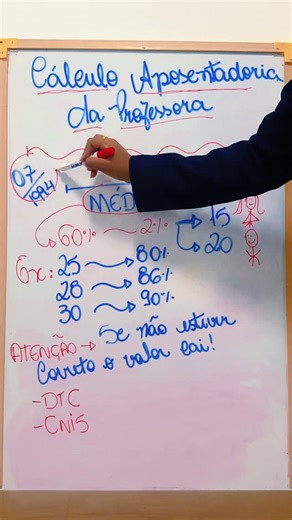 Cálculo Aposentadoria
da Professora
07
1994
MÉD
60% 2% 15
20
Ex: 25 80%
28 86%
30 90%
ATENÇÃO → Se não estiver
Correto o valor cai!
- DTC
- CNIS